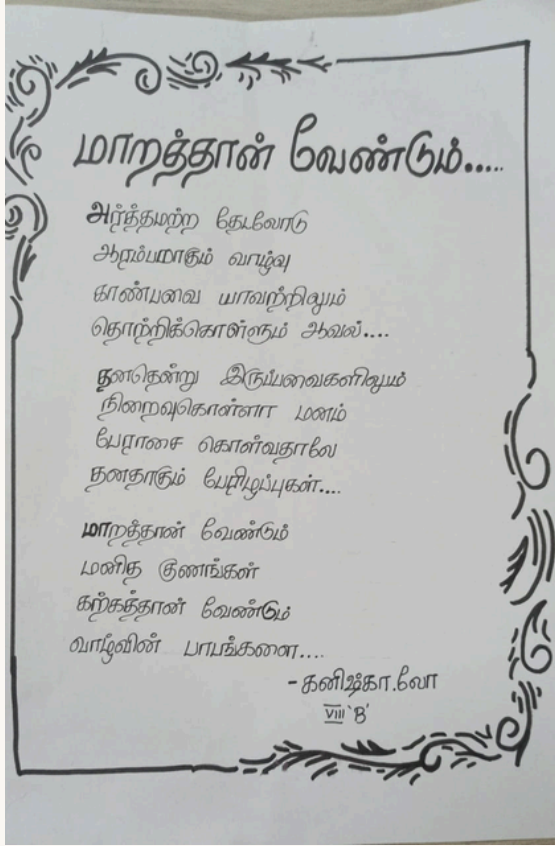 மாறத்தான் வேண்டும்.....
அர்த்தமற்ற தேடலோடு
ஆரம்பமாகும் வாழ்வு
காண்பவை யாவற்றிலும்
தொற்றிக்கொள்ளும் ஆவல்....
தனதென்று இருப்பவைகளிலும்
நிறைவுகொள்ளா மனம்
பேராசை கொள்வதாலே
தனதாகும் பேரிழப்புகள்....
மாறத்தான் வேண்டும்
மனித குணங்கள்
கற்கத்தான் வேண்டும்
வாழ்வின் பாடங்களை....
- கனிஷ்கா.லோ
VIII 'B'